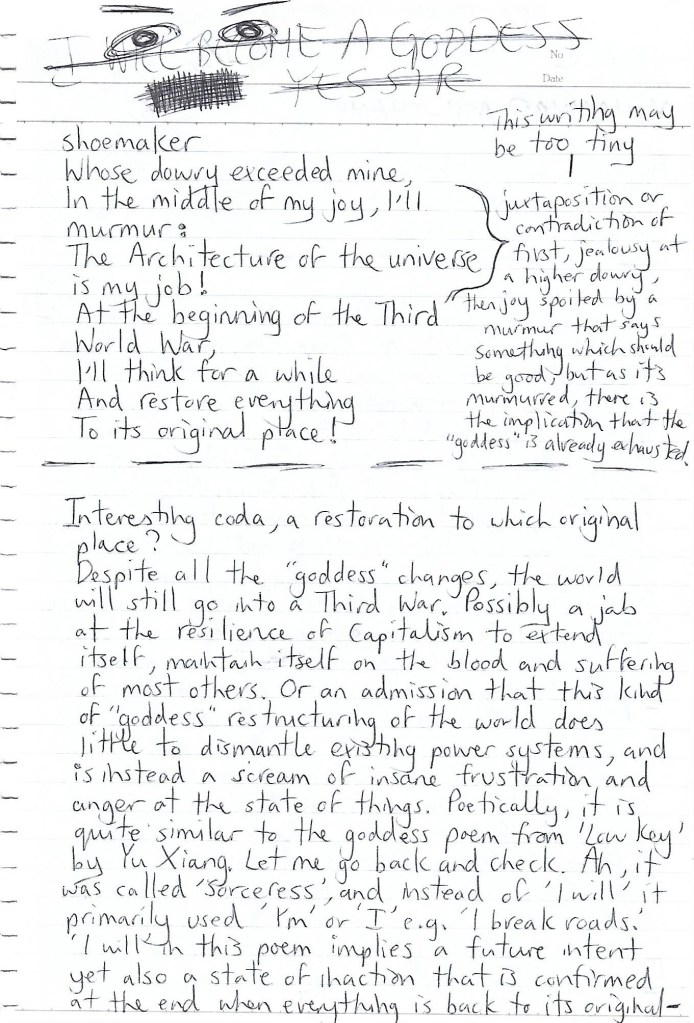 I WILL BECOME A GODDESS
YES SIR
No
Date
This writing may
be too tiny
shoemaker
Whose dowry exceeded mine,
In the middle of my joy, I'll
murmur:
The Architecture of the universe
is my job!
At the beginning of the Third
World War,
I'll think for a while
And restore everything
To its original place!
juxtaposition or
contradiction of
first, jealousy at
a higher dowry,
then joy spoiled by a
murmur that says
something which should
be good, but as it's
murmurred, there is
the implication that the
"goddess" is already exhausted.
Interesting coda, a restoration to which original
place?
Despite all the "goddess" changes, the world
will still go into a Third War. Possibly a jab
at the resilience of Capitalism to extend
itself, maintain itself on the blood and suffering
of most others. Or an admission that this kind
of "goddess" restructuring of the world does
little to dismantle existing power systems, and
is instead a scream of insane frustration and
anger at the state of things. Poetically, it is
quite similar to the goddess poem from 'Low Key'
by Yu Xiang. Let me go back and check. Ah, it
was called 'Sorceress', and instead of 'I will' it
primarily used 'I'm' or 'I' e.g. 'I break roads.'
'I will' in this poem implies a future intent
yet also a state of inaction that is confirmed
at the end when everything is back to its original-